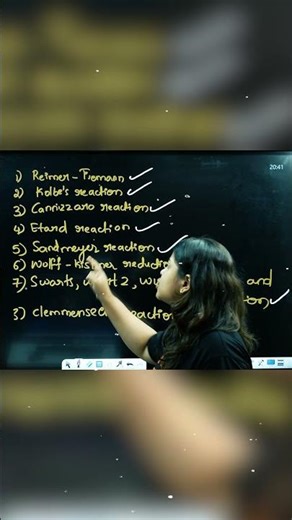 20:41
1) Reimer-Tiemann
2) Kolbe's reaction
3) Cannizzaro reaction
4) Etard reaction
5) Sandmeyer reaction
6) Wolff-
7) Swarts, and
3) Clemmensen